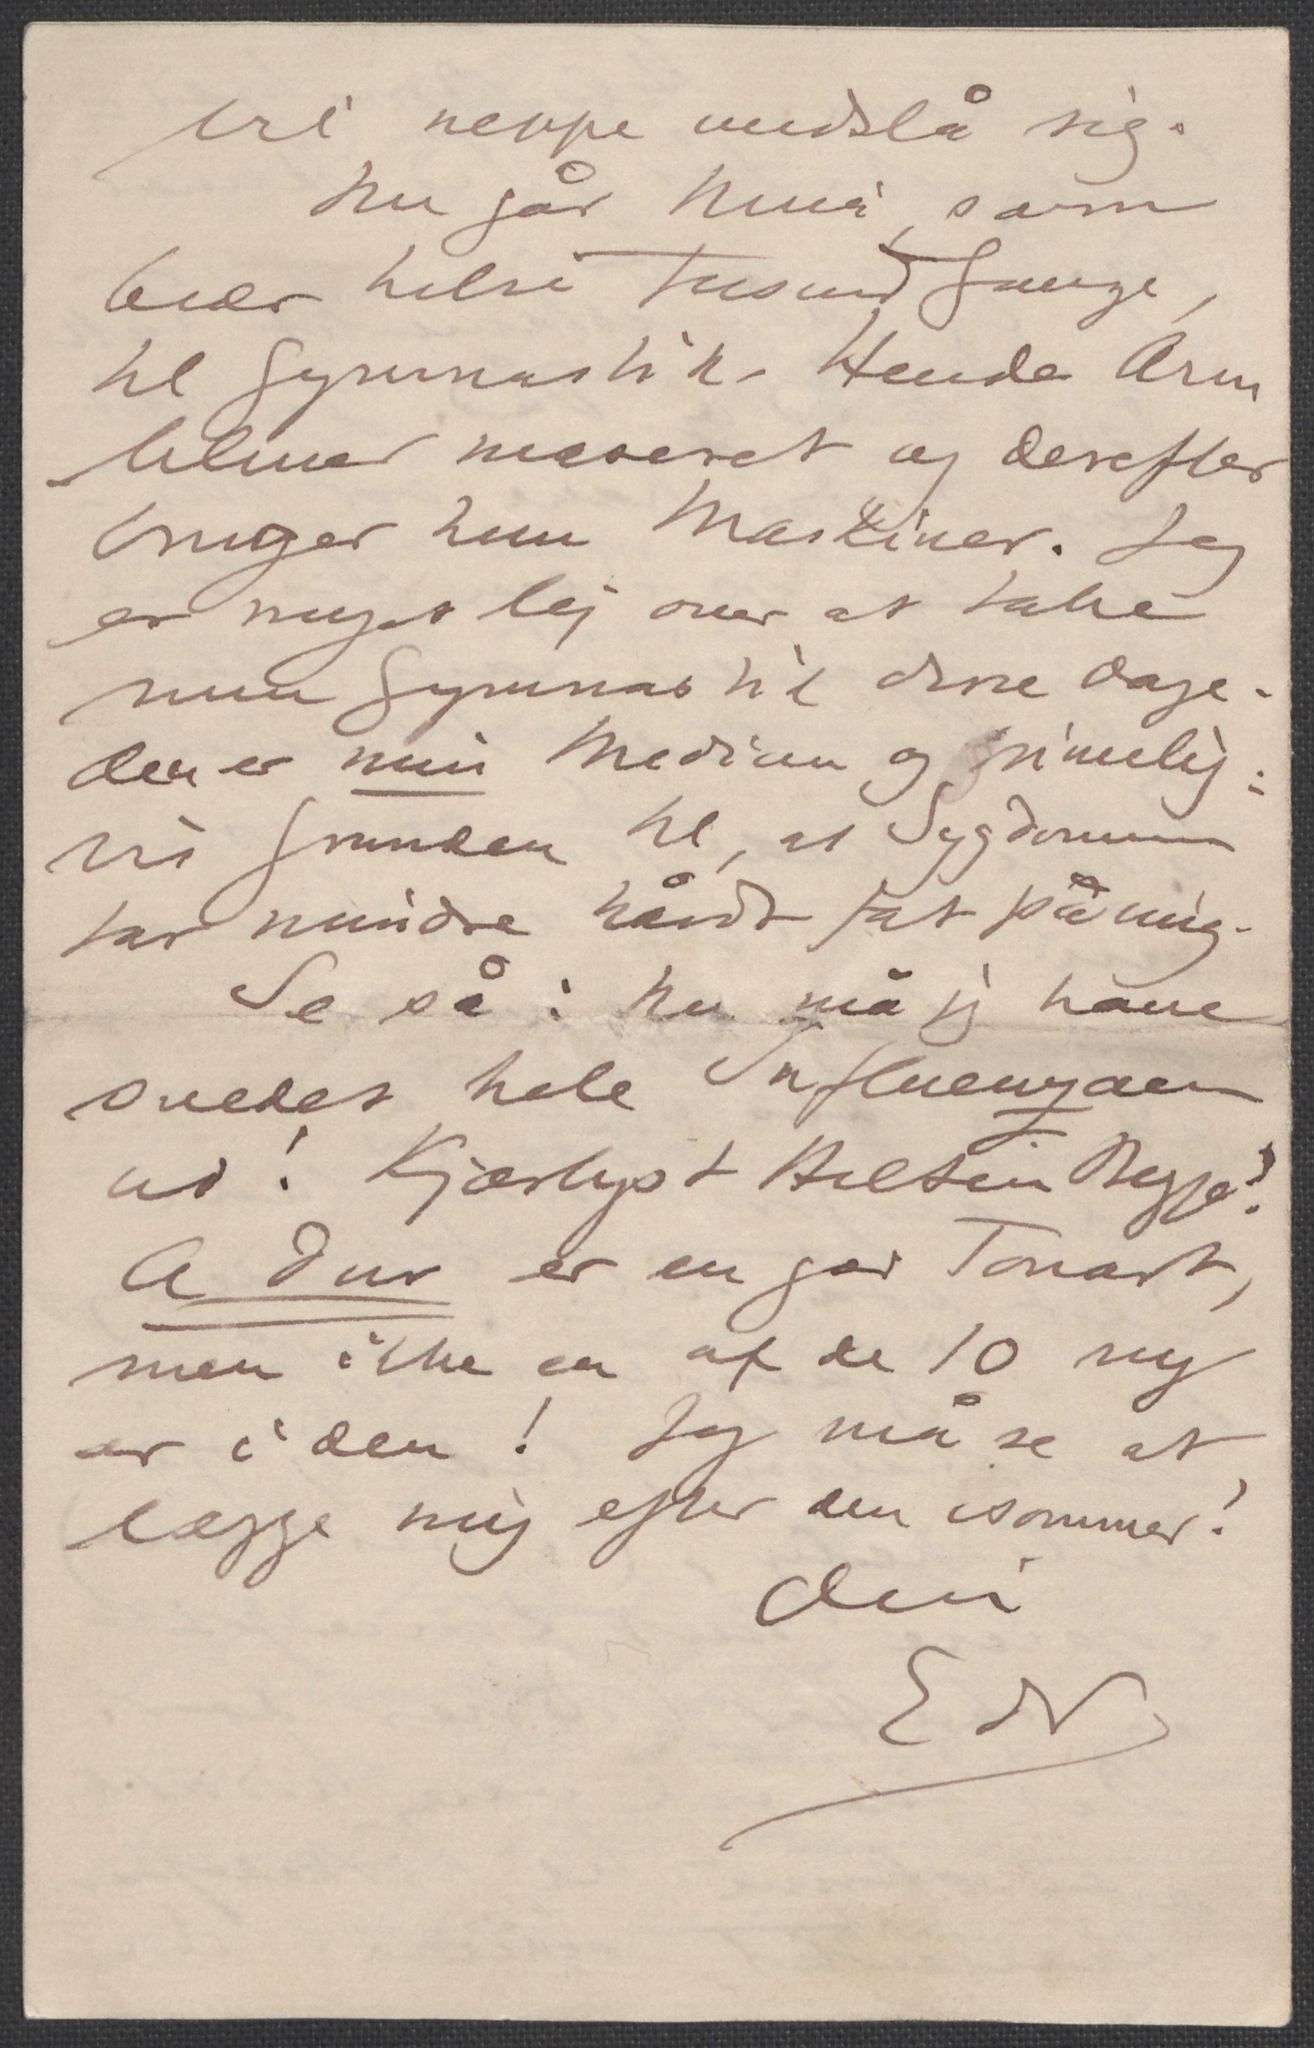 vil neppe undslå sig.
Nu går Nina, som
beder hilse Tusend Gange,
til Gymnastik. Hendes Arm
bliver masseret og derefter
bruger hun Maskiner. Jeg
er meget lej over at
min Gymnastik disse Dage.
den er min Medicin og rimelig:
vis Grunden til, at Sygdommen
tar mindre hårdt fat på mig.
Se så: Nu må jeg have
svedet hele Influenzaen
ud! Kjærligst Hilsen Begge!
A dur er en god Tonart,
men ikke en af de 10 ny
er i den! Jeg må se at
lægge mig efter den isommer!
Din